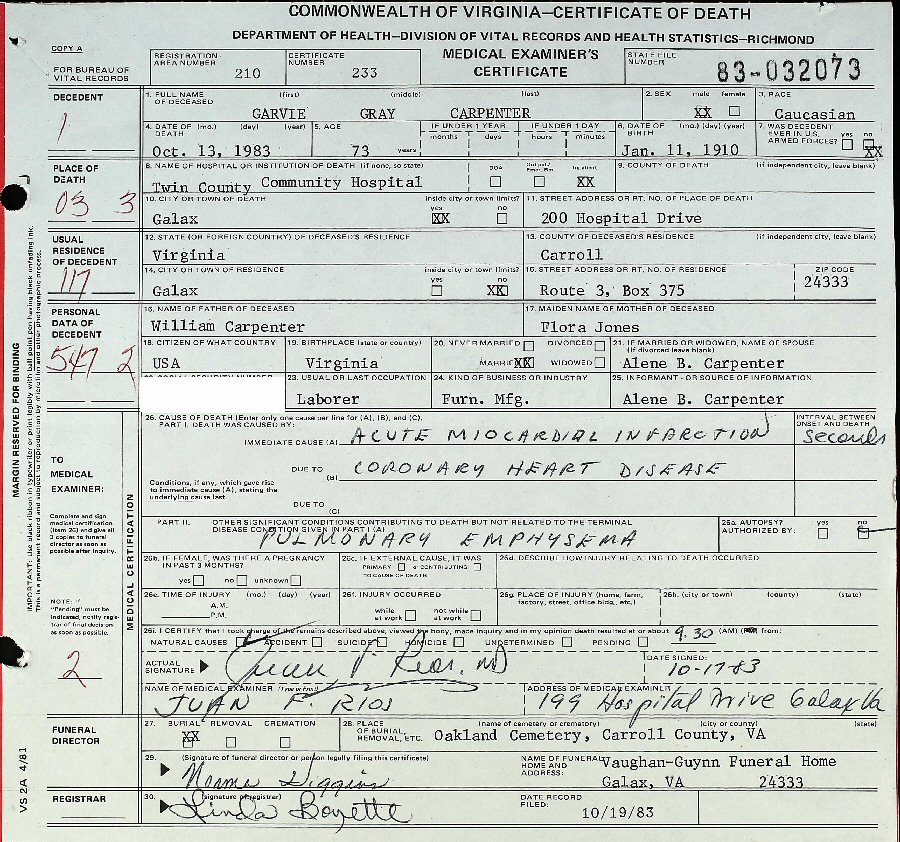 COMMONWEALTH OF VIRGINIA—CERTIFICATE OF DEATH
DEPARTMENT OF HEALTH—DIVISION OF VITAL RECORDS AND HEALTH STATISTICS—RICHMOND
COPY A
FOR BUREAU OF VITAL RECORDS
REGISTRATION AREA NUMBER 210
CERTIFICATE NUMBER 233
MEDICAL EXAMINER'S CERTIFICATE
STATE FILE NUMBER 83-032073
DECEDENT
1
1. FULL NAME OF DECEASED (first) (middle) (last)
GARVIE GRAY CARPENTER
2. SEX male female
XX
3. RACE
Caucasian
4. DATE OF DEATH (mo.) (day) (year)
Oct. 13, 1983
5. AGE
73 years
IF UNDER 1 YEAR months days
IF UNDER 1 DAY hours minutes
6. DATE OF BIRTH (mo.) (day) (year)
Jan. 11, 1910
7. WAS DECEDENT EVER IN U.S. ARMED FORCES? yes no
XX
PLACE OF DEATH
03 3
8. NAME OF HOSPITAL OR INSTITUTION OF DEATH (if none, so state)
Twin County Community Hospital
DOA Outpat/Emer. Rm. Inpatient
XX
9. COUNTY OF DEATH (if independent city, leave blank)
10. CITY OR TOWN OF DEATH inside city or town limits? yes no
Galax XX
11. STREET ADDRESS OR RT. NO. OF PLACE OF DEATH
200 Hospital Drive
USUAL RESIDENCE OF DECEDENT
117
12. STATE (OR FOREIGN COUNTRY) OF DECEASED'S RESIDENCE
Virginia
13. COUNTY OF DECEASED'S RESIDENCE (if independent city, leave blank)
Carroll
14. CITY OR TOWN OF RESIDENCE inside city or town limits? yes no
Galax XX
15. STREET ADDRESS OR RT. NO. OF RESIDENCE
Route 3, Box 375
ZIP CODE
24333
PERSONAL DATA OF DECEDENT
547 2
16. NAME OF FATHER OF DECEASED
William Carpenter
17. MAIDEN NAME OF MOTHER OF DECEASED
Flora Jones
18. CITIZEN OF WHAT COUNTRY
USA
19. BIRTHPLACE (state or country)
Virginia
20. NEVER MARRIED DIVORCED
MARRIED XX WIDOWED
21. IF MARRIED OR WIDOWED, NAME OF SPOUSE (if divorced leave blank)
Alene B. Carpenter
23. USUAL OR LAST OCCUPATION
Laborer
24. KIND OF BUSINESS OR INDUSTRY
Furn. Mfg.
25. INFORMANT - OR SOURCE OF INFORMATION
Alene B. Carpenter
TO MEDICAL EXAMINER:
Complete and sign medical certification (item 26) and give all 3 copies to funeral director as soon as possible after inquiry.
NOTE: If "Pending" must be indicated, notify registrar of final decision as soon as possible.
2
MEDICAL CERTIFICATION
26. CAUSE OF DEATH (Enter only one cause per line for (A), (B), and (C).
PART I. DEATH WAS CAUSED BY:
INTERVAL BETWEEN ONSET AND DEATH
IMMEDIATE CAUSE (A) ACUTE MIOCARDIAL INFARCTION seconds
DUE TO (B) CORONARY HEART DISEASE
Conditions, if any, which gave rise to immediate cause (A), stating the underlying cause last
DUE TO (C)
PART II. OTHER SIGNIFICANT CONDITIONS CONTRIBUTING TO DEATH BUT NOT RELATED TO THE TERMINAL DISEASE CONDITION GIVEN IN PART I (A)
PULMONARY EMPHYSEMA
26a. AUTOPSY? AUTHORIZED BY: yes no
26b. IF FEMALE, WAS THERE A PREGNANCY IN PAST 3 MONTHS?
yes no unknown
26c. IF EXTERNAL CAUSE, IT WAS
PRIMARY or CONTRIBUTING
TO CAUSE OF DEATH
26d. DESCRIBE HOW INJURY RELATING TO DEATH OCCURRED
26e. TIME OF INJURY (mo.) (day) (year)
A.M.
P.M.
26f. INJURY OCCURRED
while at work not while at work
26g. PLACE OF INJURY (home, farm, factory, street, office bldg., etc.)
26h. (city or town) (county) (state)
26i. I CERTIFY that I took charge of the remains described above, viewed the body, made inquiry and in my opinion death resulted at or about 9.30 (AM) from:
NATURAL CAUSES ACCIDENT SUICIDE HOMICIDE UNDETERMINED PENDING
ACTUAL SIGNATURE Juan F. Rios, MD
DATE SIGNED:
10-17-83
NAME OF MEDICAL EXAMINER (Type or Print)
JUAN F. RIOS
ADDRESS OF MEDICAL EXAMINER
199 Hospital Drive Galax Va
FUNERAL DIRECTOR
27. BURIAL REMOVAL CREMATION
XX
28. PLACE OF BURIAL, REMOVAL, ETC. (name of cemetery or crematory) (city or county) (state)
Oakland Cemetery, Carroll County, VA
29. (Signature of funeral director or person legally filing this certificate)
Norma Higgins
NAME OF FUNERAL HOME AND ADDRESS:
Vaughan-Guynn Funeral Home
Galax, VA 24333
REGISTRAR
30. (signature of registrar)
Linda Boyette
DATE RECORD FILED:
10/19/83
VS 2A 4/81
MARGIN RESERVED FOR BINDING
IMPORTANT: Use black ribbon in typewriter or print legibly with ball point pen having black unfading ink.
This is a permanent record and subject to reproduction by microfilm and other photographic process.